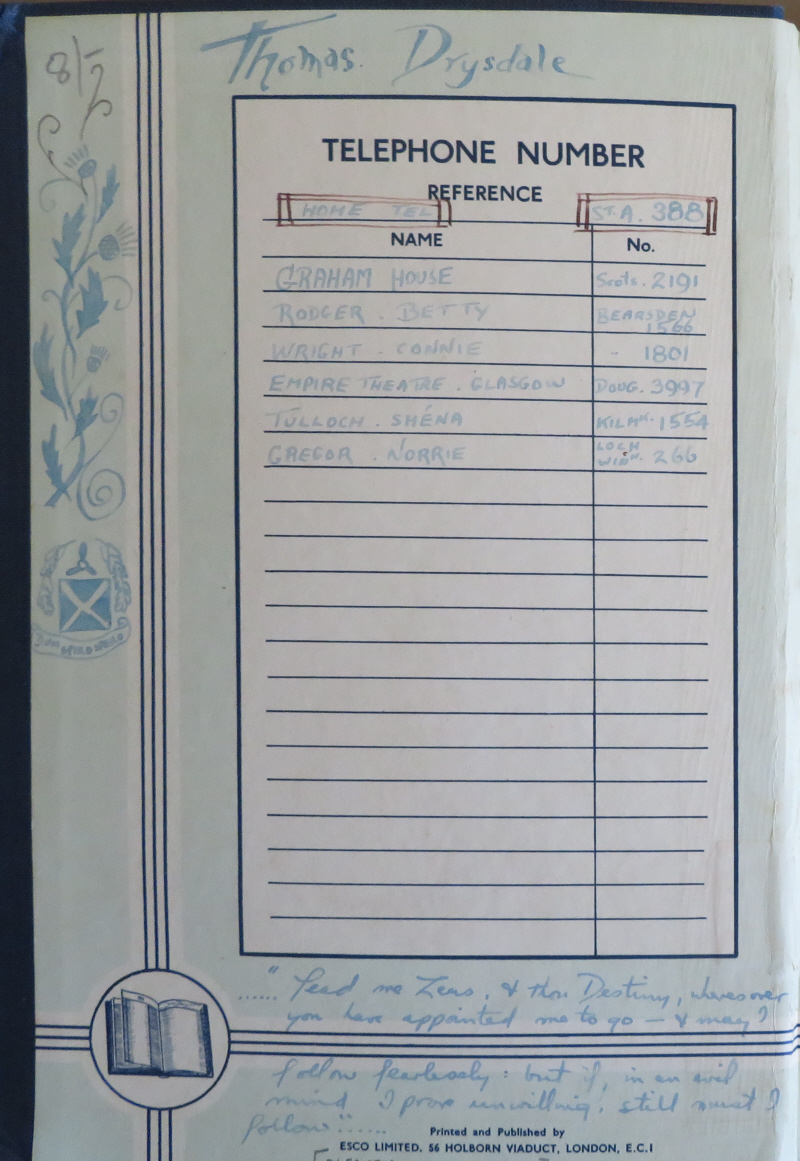 8/-
Thomas. Drysdale
TELEPHONE NUMBER
REFERENCE
HOME TEL ST. A. 388
NAME No.
GRAHAM HOUSE Scots. 2191
RODGER . BETTY BEARSDEN 1566
WRIGHT . CONNIE - 1801
EMPIRE THEATRE . GLASGOW DOUG. 3997
TULLOCH . SHÉNA KILMK. 1554
GREGOR . NORRIE LOCH WINH. 266
DUM SPIRO SPERO
...... "Lead me Zeus, & thou Destiny, wheresoever
you have appointed me to go — & may I
follow fearlessly: but if, in an evil
mind, I prove unwilling, still must I
follow"......
Printed and Published by
ESCO LIMITED. 56 HOLBORN VIADUCT, LONDON, E.C.1